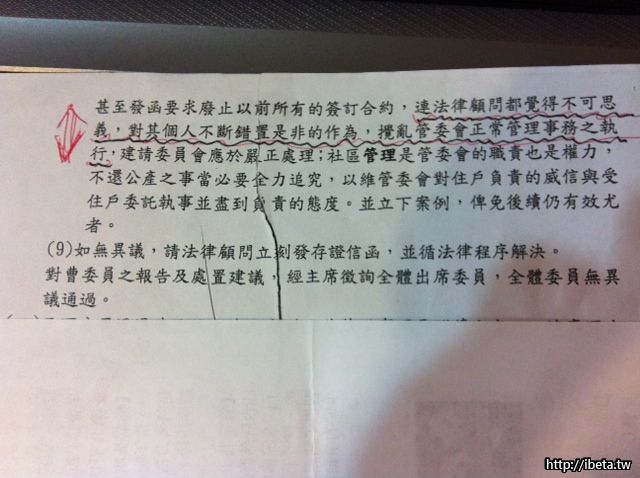 甚至發函要求廢止以前所有的簽訂合約，連法律顧問都覺得不可思
義，對其個人不斷錯置是非的作為，攪亂管委會正常管理事務之執
行，建請委員會應於嚴正處理；社區管理是管委會的職責也是權力，
不還公產之事當必要全力追究，以維管委會對住戶負責的威信與受
住戶委託執事並盡到負責的態度。並立下案例，俾免後續仍有效尤
者。
(9)如無異議，請法律顧問立刻發存證信函，並循法律程序解決。
對曹委員之報告及處置建議，經主席徵詢全體出席委員，全體委員無異
議通過。
http://ibeta.tw